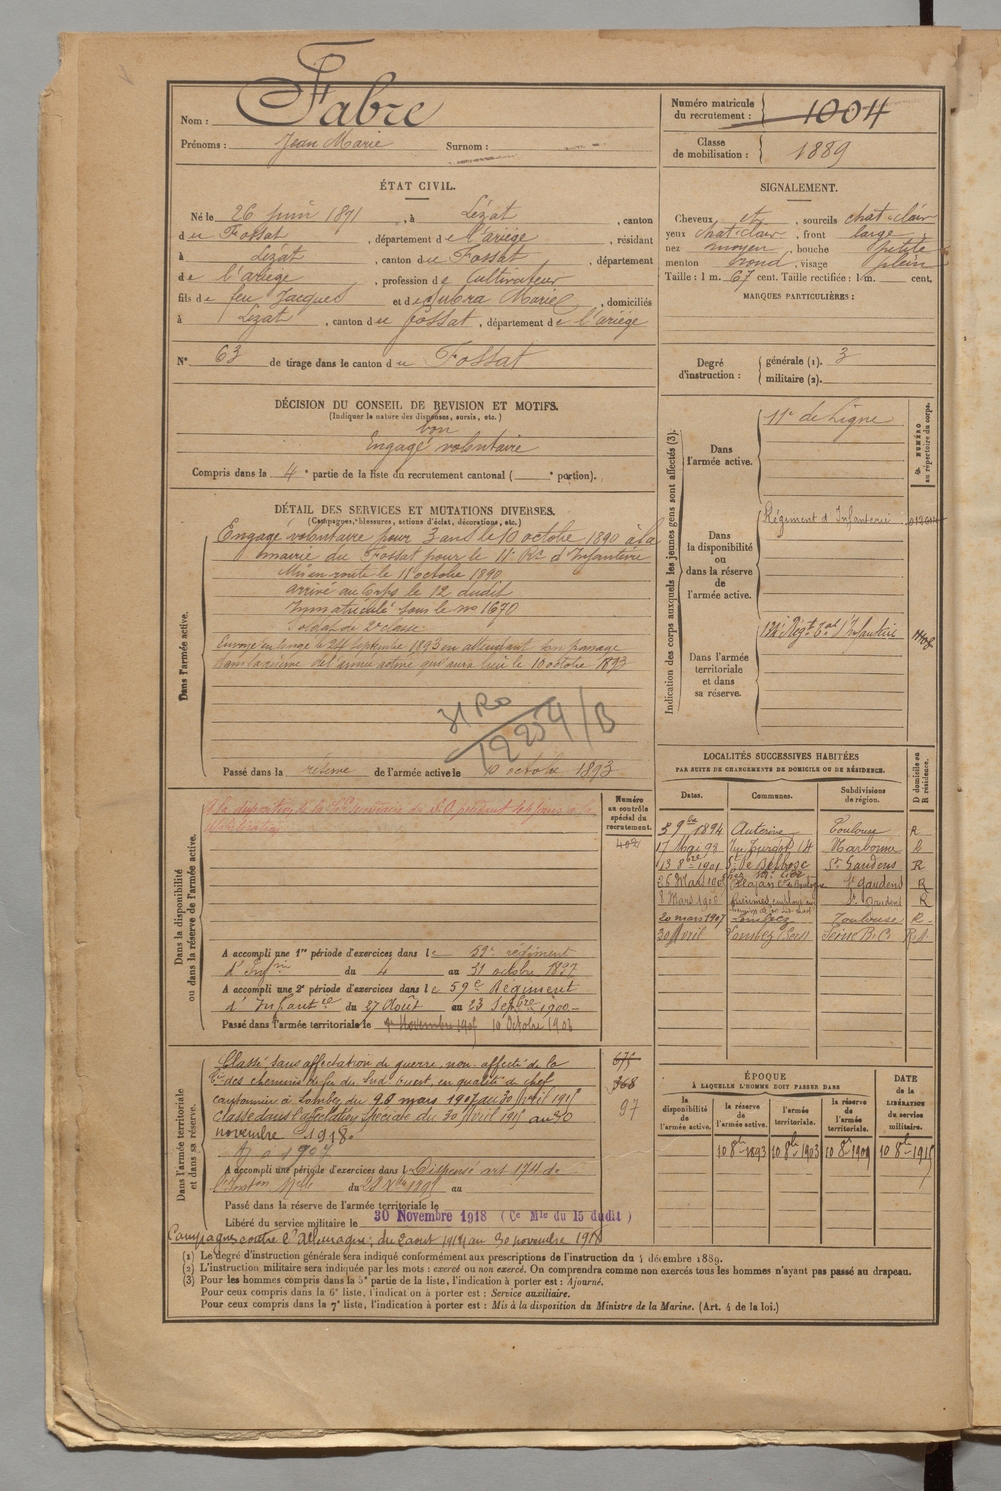 Nom : Fabre
Prénoms : Jean Marie Surnom :
Numéro matricule du recrutement : 1004
Classe de mobilisation : 1889
ÉTAT CIVIL.
Né le 26 juin 1871, à Lézat, canton
du Fossat, département de l'ariège, résidant
à Lézat, canton du Fossat, département
de l'ariège, profession de Cultivateur
fils de feu Jacques et de Subra Marie, domiciliés
à Lezat, canton du Fossat, département de l'ariège
N° 63 de tirage dans le canton du Fossat
SIGNALEMENT.
Cheveux et, sourcils chat-clair
yeux chat-clair, front large
nez moyen, bouche petite
menton rond, visage plein
Taille : 1 m. 67 cent. Taille rectifiée : 1 m. cent.
MARQUES PARTICULIÈRES :
Degré d'instruction : générale (1). 3
militaire (2).
DÉCISION DU CONSEIL DE REVISION ET MOTIFS.
(Indiquer la nature des dispenses, sursis, etc.)
bon
Engagé volontaire
Compris dans la 4e partie de la liste du recrutement cantonal ( e portion).
DÉTAIL DES SERVICES ET MUTATIONS DIVERSES.
(Campagnes, blessures, actions d'éclat, décorations, etc.)
Dans l'armée active.
Engagé volontaire pour 3 ans le 10 octobre 1890 à la
mairie du Fossat pour le 11e Rt d'Infanterie
Mis en route le 11 octobre 1890
arrivé au Corps le 12 dudit
Immatriculé sous le no 1670
Soldat de 2e classe.
Envoyé en congé le 24 Septembre 1893 en attendant son passage
dans la réserve de l'armée active qui aura lieu le 10 octobre 1893
31 Ro
12254/B
Passé dans la réserve de l'armée active le 10 octobre 1893
Indication des corps auxquels les jeunes gens sont affectés (3).
NUMÉRO au répertoire du corps.
Dans l'armée active.
11e de Ligne
Dans la disponibilité ou dans la réserve de l'armée active.
Régiment d'Infanterie
Dans l'armée territoriale et dans sa réserve.
Régt Tal d'Infanterie
Dans la disponibilité ou dans la réserve de l'armée active.
Numéro au contrôle spécial du recrutement.
402
A accompli une 1re période d'exercices dans le 59e régiment
d'Infie du 4 au 31 octobre 1897
A accompli une 2e période d'exercices dans le 59e Régiment
d'Infantie du 27 Août au 23 Septbre 1900.
Passé dans l'armée territoriale le 1er Novembre 10 Octobre 1903
LOCALITÉS SUCCESSIVES HABITÉES
PAR SUITE DE CHANGEMENTS DE DOMICILE OU DE RÉSIDENCE.
Dates. Communes. Subdivisions de région. D domicile ou R résidence.
5 9bre 1894 Auterive Toulouse R
17 Mai 98 Narbonne
13 8bre 1901 St Gaudens R
26 Mars St gaudens R
8 Mars St Gaudens R
20 mars 1907 Lombez Toulouse R
30 Avril Seine B.C.
Dans l'armée territoriale et dans sa réserve.
Classé sans affectation de guerre, non affecté de la
Cie des chemins de fer du Sud Ouest, en qualité de chef
cantonnier à Lombez du 20 mars 1907 au 30 Avril 1915
Classé dans l'affectation Spéciale du 30 Avril 1915 au 30
novembre 1918.
675
368
97
A accompli une période d'exercices dans l Dispensé art 174 de
l'Inston Mle du au
Passé dans la réserve de l'armée territoriale le
Libéré du service militaire le 30 Novembre 1918 (Ce Mle du 15 dudit)
Campagnes contre l'Allemagne, du 2 aout 1914 au 30 novembre 1918
ÉPOQUE
À LAQUELLE L'HOMME DOIT PASSER DANS
la disponibilité de l'armée active. la réserve de l'armée active. l'armée territoriale. la réserve de l'armée territoriale.
DATE de la LIBÉRATION du service militaire.
10 8bre 1893 10 8bre 1903 10 8bre 1909 10 8bre 1915
(1) Le degré d'instruction générale sera indiqué conformément aux prescriptions de l'instruction du 4 décembre 1889.
(2) L'instruction militaire sera indiquée par les mots : exercé ou non exercé. On comprendra comme non exercés tous les hommes n'ayant pas passé au drapeau.
(3) Pour les hommes compris dans la 5e partie de la liste, l'indication à porter est : Ajourné.
Pour ceux compris dans la 6e liste, l'indication à porter est : Service auxiliaire.
Pour ceux compris dans la 7e liste, l'indication à porter est : Mis à la disposition du Ministre de la Marine. (Art. 4 de la loi.)